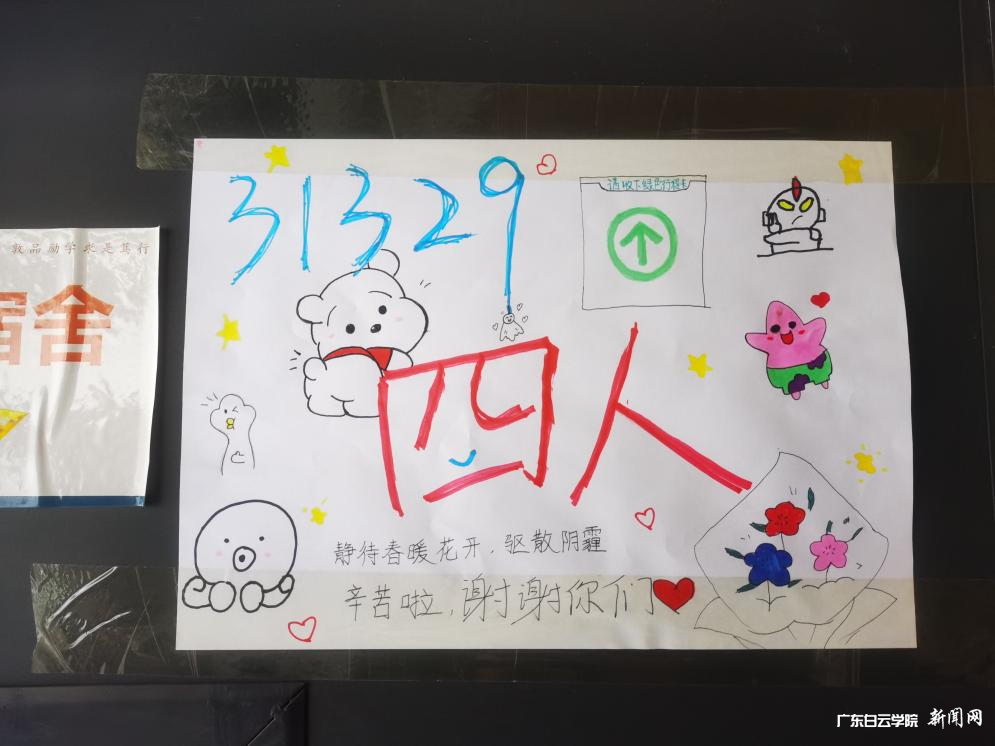 31329
请收下绿色行程卡
四人
静待春暖花开，驱散阴霾
辛苦啦，谢谢你们
敦品励学 求是笃行
宿舍
广东白云学院 新闻网